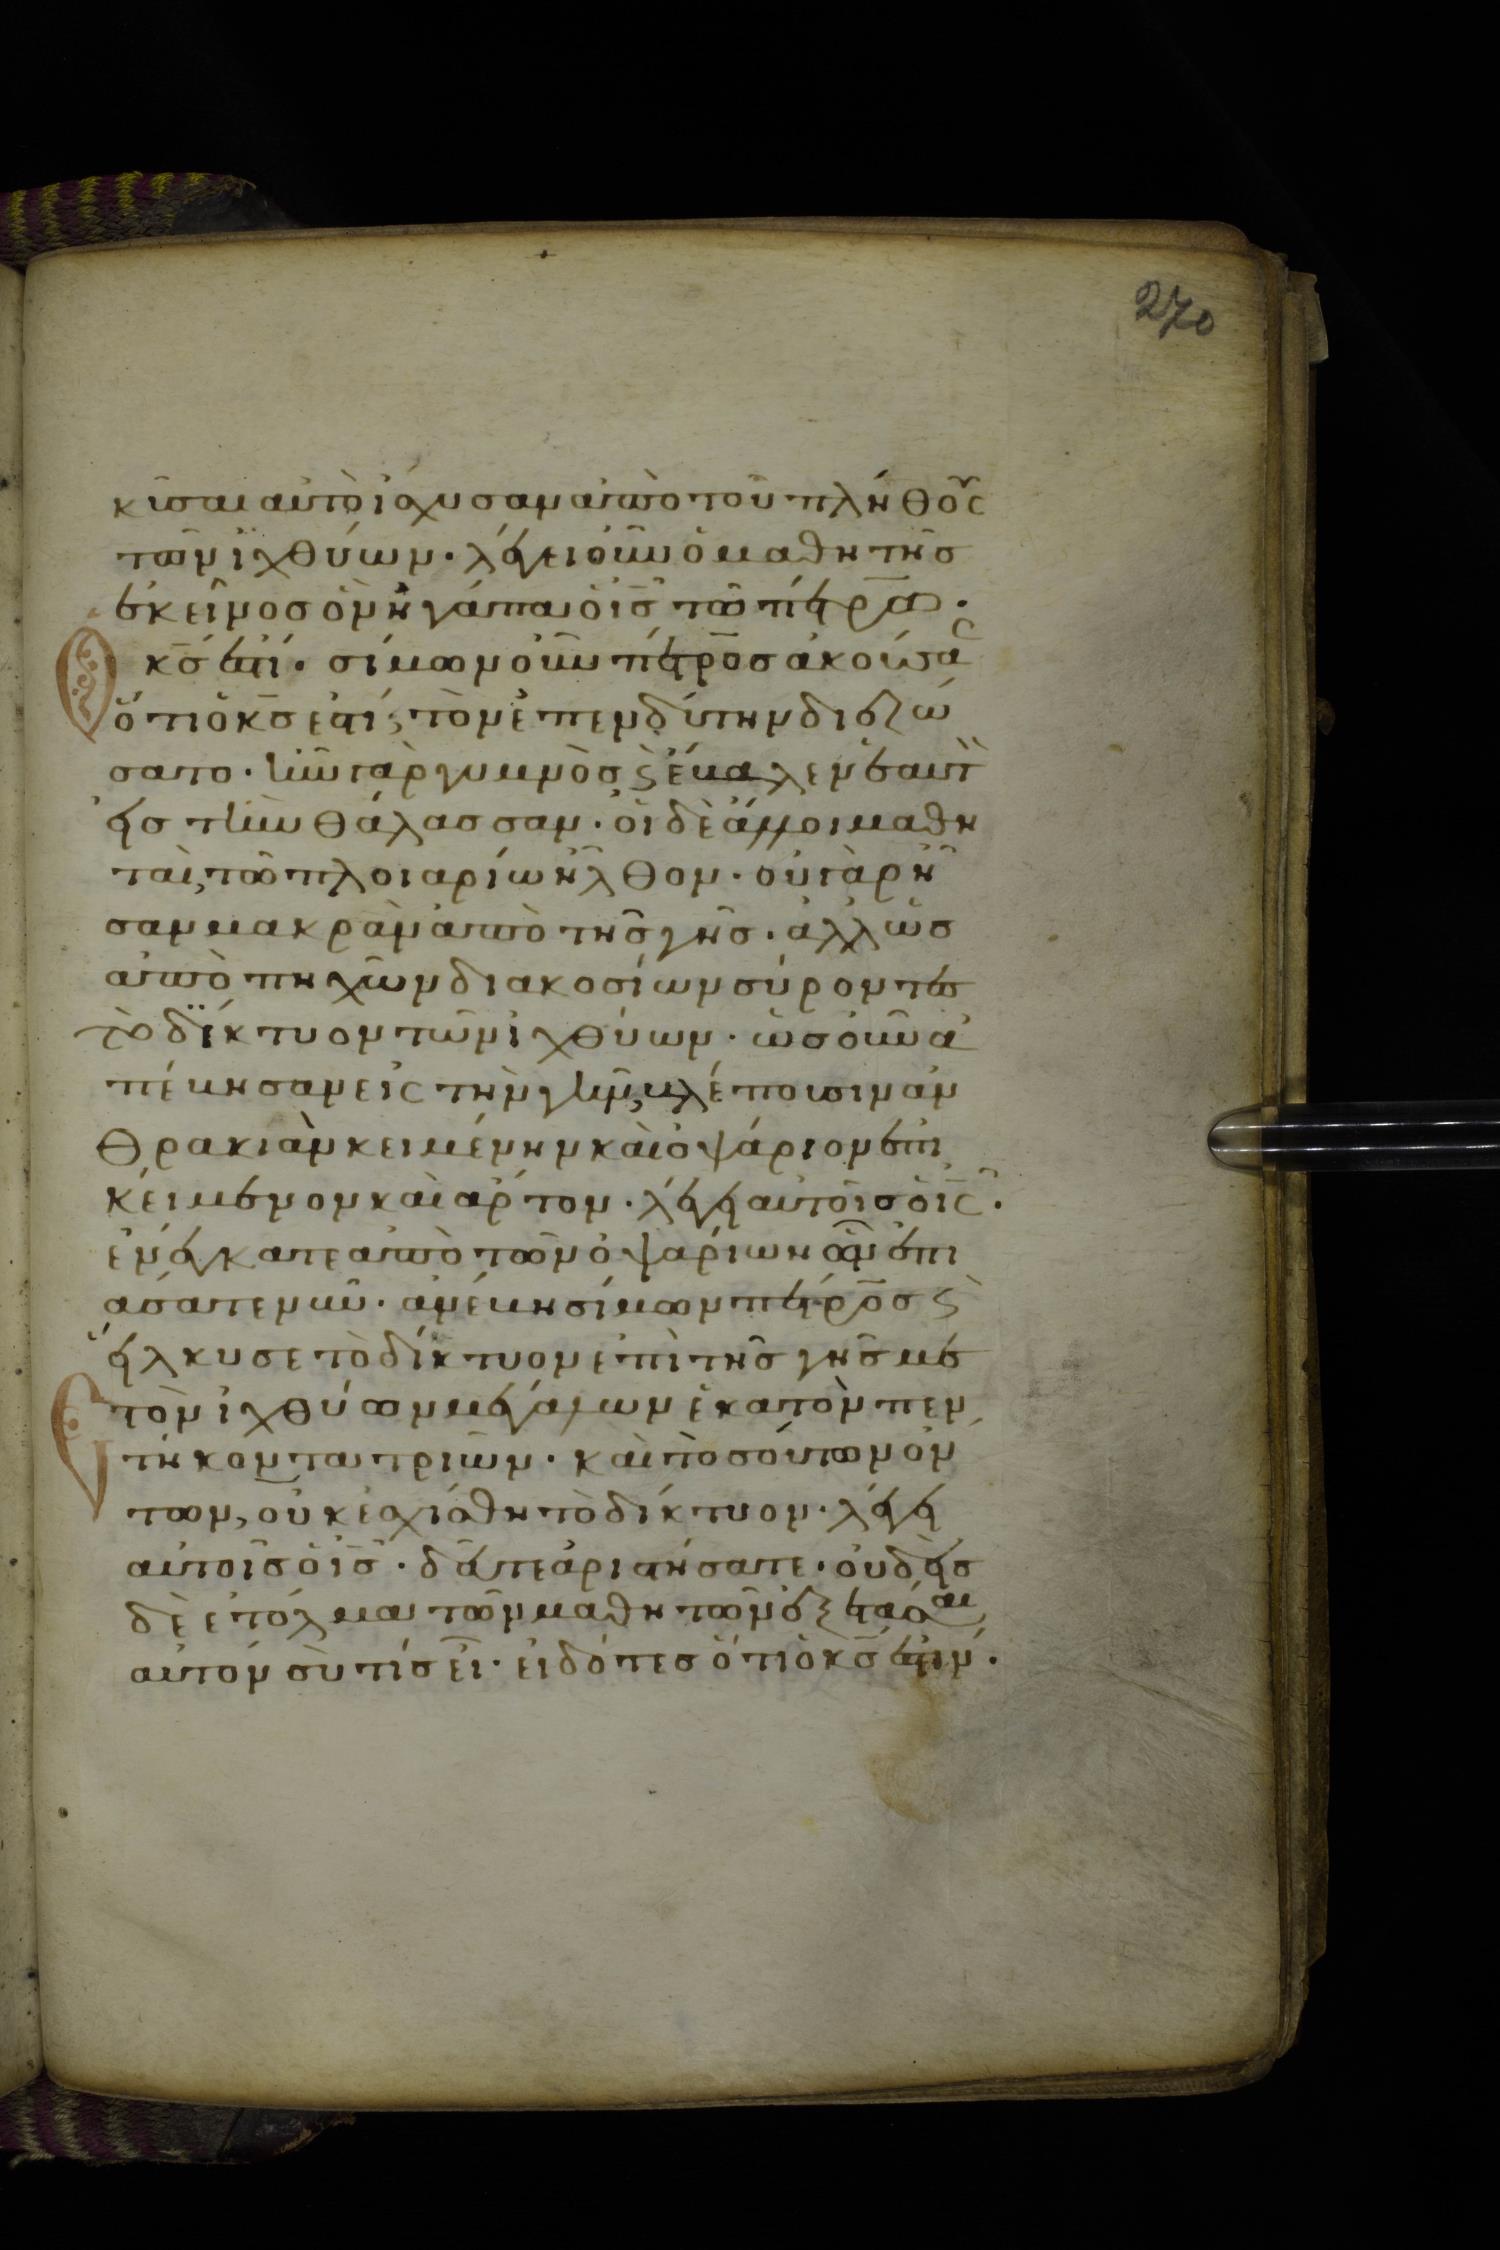 270
κῦσαι αὐτὸ ἴσχυσαν ἀπὸ τοῦ πλήθους
τῶν ἰχθύων · λέγει οὖν ὁ μαθητὴς
ἐκεῖνος ὃν ἠγάπα ὁ ις̅ τῶ πέτρω ·
ὁ κς̅ ἐστί · σίμων οὖν πέτρος ἀκούσας
ὅτι ὁ κς̅ ἐστί, τὸν ἐπενδύτην διεζώ
σατο · ἦν γὰρ γυμνὸς ϗ ἔβαλεν ἑαυτὸν
εἰς τὴν θάλασσαν · οἱ δὲ ἄλλοι μαθη
ταὶ, τῶ πλοιαρίω ἦλθον · οὐ γὰρ ἦ
σαν μακρὰν ἀπὸ τῆς γῆς · ἀλλ ὡς
ἀπὸ πηχῶν διακοσίων σύροντες
τὸ δίκτυον τῶν ἰχθύων · ὡς οὖν ἀ
πέβησαν εἰς τὴν γῆν, βλέπουσιν ἀν
θρακιὰν κειμένην καὶ ὀψάριον ἐπι
κείμενον καὶ ἄρτον · λέγει αὐτοῖς ὁ ις̅ ·
ἐνέγκατε ἀπὸ τῶν ὀψαρίων ὧν ἐπι
άσατε νῦν · ἀνέβη σίμων πέτρος ϗ
εἵλκυσε τὸ δίκτυον ἐπὶ τῆς γῆς με
στὸν ἰχθύων μεγάλων ἑκατὸν πεν
τήκοντα τριῶν · καὶ τοσούτων ὄν
των, οὐκ ἐσχίσθη τὸ δίκτυον · λέγει
αὐτοῖς ὁ ις̅ · δεῦτε ἀριστήσατε · οὐδεὶς
δὲ ἐτόλμα τῶν μαθητῶν ἐξετάσαι
αὐτόν σὺ τίς εἶ · εἰδότες ὅτι ὁ κς̅ ἐστιν ·